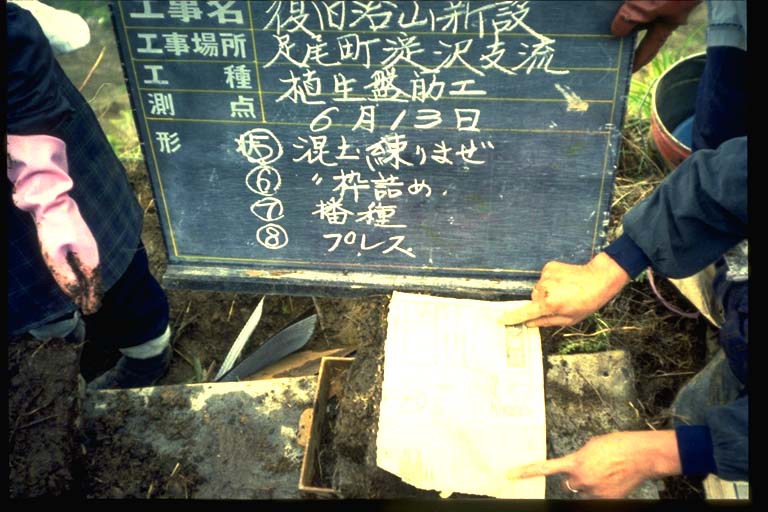 工事名 復旧治山新設
工事場所 足尾町淀沢支流
工種 植生盤筋工
測点 6月13日
形状 ⑤ 混土練りまぜ
⑥ 〃枠詰め.
⑦ 播種
⑧ プレス